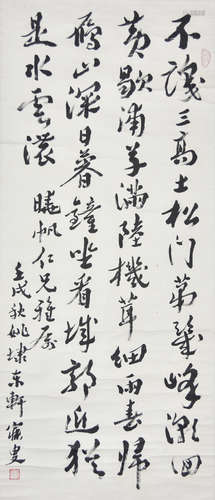 不識三高士松門第幾峰潮回
黃歇浦草滿陸機茸細雨春歸
鴈山深日暮鐘坐看城郭近猶
是水雲濃
曉帆仁兄雅屬
壬戌秋姚埭東軒寐叟